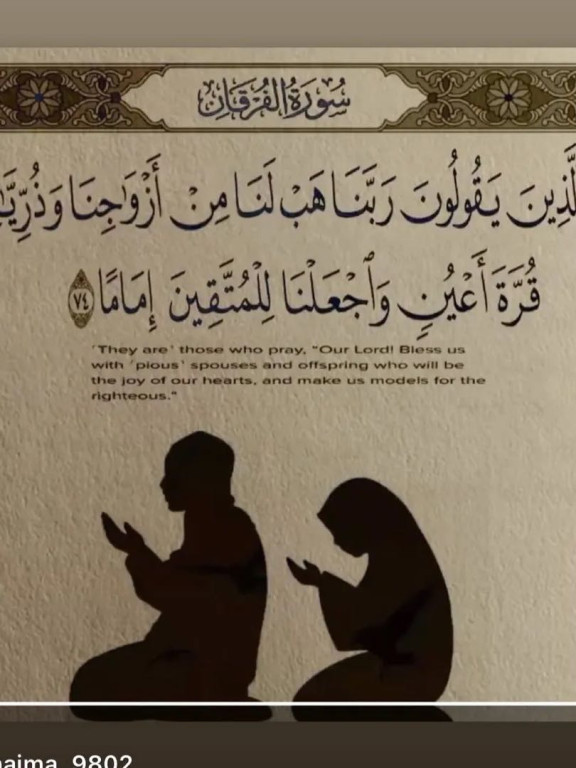 سُورَةُ الفُرْقَانِ
يَقُولُونَ رَبَّنَا هَبْ لَنَا مِنْ أَزْوَٰجِنَا
قُرَّةَ أَعْيُنٍ وَٱجْعَلْنَا لِلْمُتَّقِينَ إِمَامًا ٧٤
˹They are˺ those who pray, “Our Lord! Bless us
with ˹pious˺ spouses and offspring who will be
the joy of our hearts, and make us models for the
righteous.”
9802